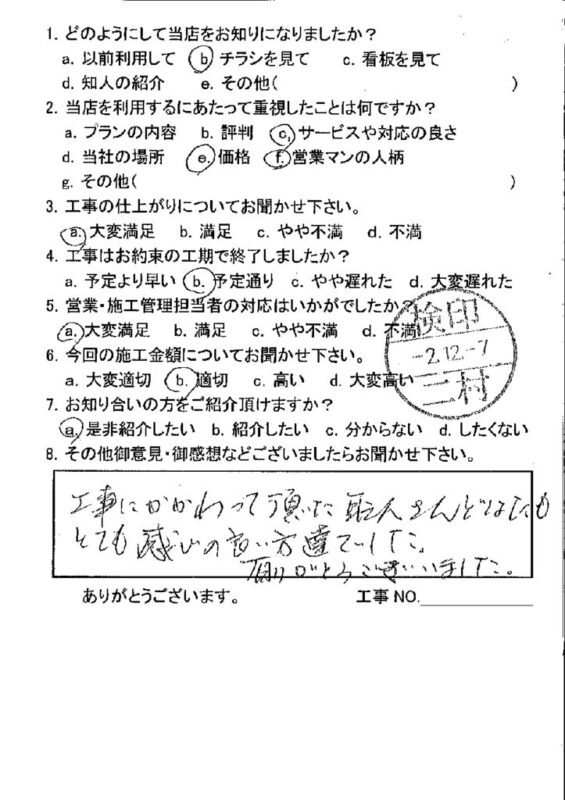 1. どのようにして当店をお知りになりましたか？
a. 以前利用して　b チラシを見て　c. 看板を見て
d. 知人の紹介　e. その他(　)
2. 当店を利用するにあたって重視したことは何ですか？
a. プランの内容　b. 評判　c. サービスや対応の良さ
d. 当社の場所　e. 価格　f. 営業マンの人柄
g. その他(　)
3. 工事の仕上がりについてお聞かせ下さい。
a. 大変満足　b. 満足　c. やや不満　d. 不満
4. 工事はお約束の工期で終了しましたか？
a. 予定より早い　b. 予定通り　c. やや遅れた　d. 大変遅れた
5. 営業・施工管理担当者の対応はいかがでしたか？
a. 大変満足　b. 満足　c. やや不満　d. 不満
検印
-2.12.-7
二村
6. 今回の施工金額についてお聞かせ下さい。
a. 大変適切　b. 適切　c. 高い　d. 大変高い
7. お知り合いの方をご紹介頂けますか？
a. 是非紹介したい　b. 紹介したい　c. 分からない　d. したくない
8. その他御意見・御感想などございましたらお聞かせ下さい。
工事にかかわって頂いた職人さんどなたも
とても感じの良い方達でした。
有りがとうございました。
ありがとうございます。　工事 NO.